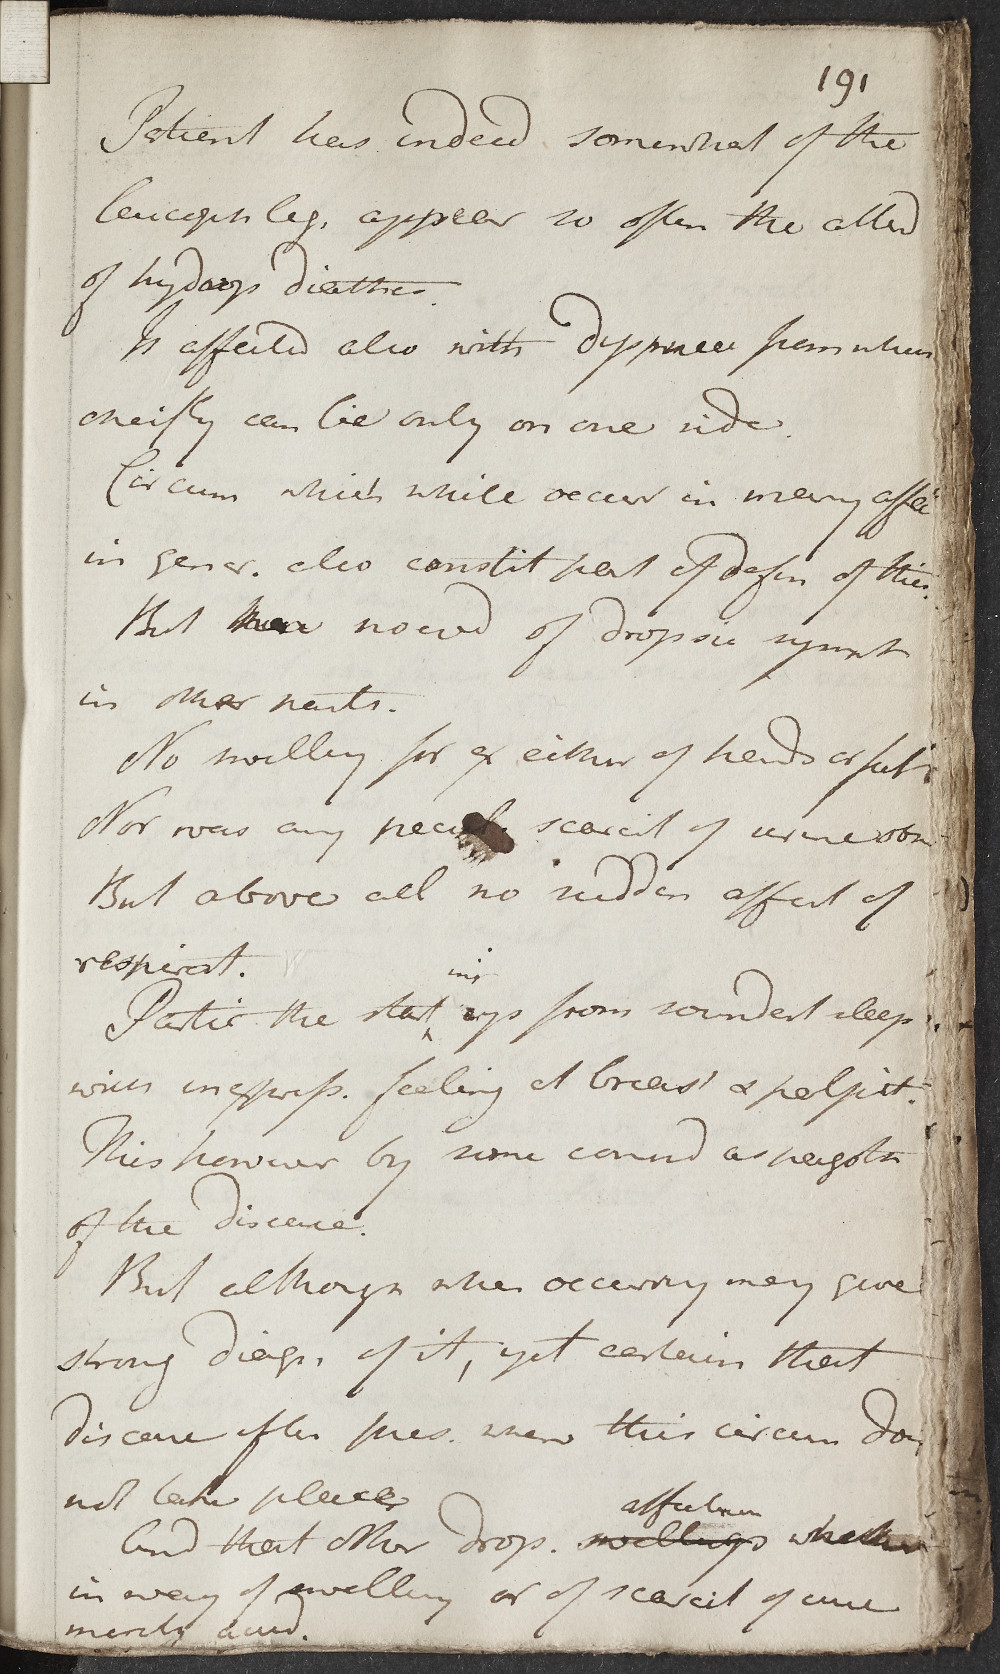 191
Patient has indeed somewhat of the
leucophleg. appear so often the attend
of hydrops diathes.
Is affected also with dyspnoea from when
chiefly can lie only on one side.
Circum which while occur in many affec
in gener. also constit part of defin of this.
But no evid of dropsic sympt
in other parts.
No swelling for ex either of hands or feet
Nor was any scarcit of urine obs
But above all no sudden affect of
respirat.
Partic the starting ups from soundest sleep
with inexpress. feeling at breast & palpit.
This however by some consid as pathogn
of the disease.
But although when occurring may give
strong diagn of it, yet certain that
disease often pres. when this circum does
not take place
And that other drop. affection swellings whether
in way of swelling or of scarcit of urine
merely accid.